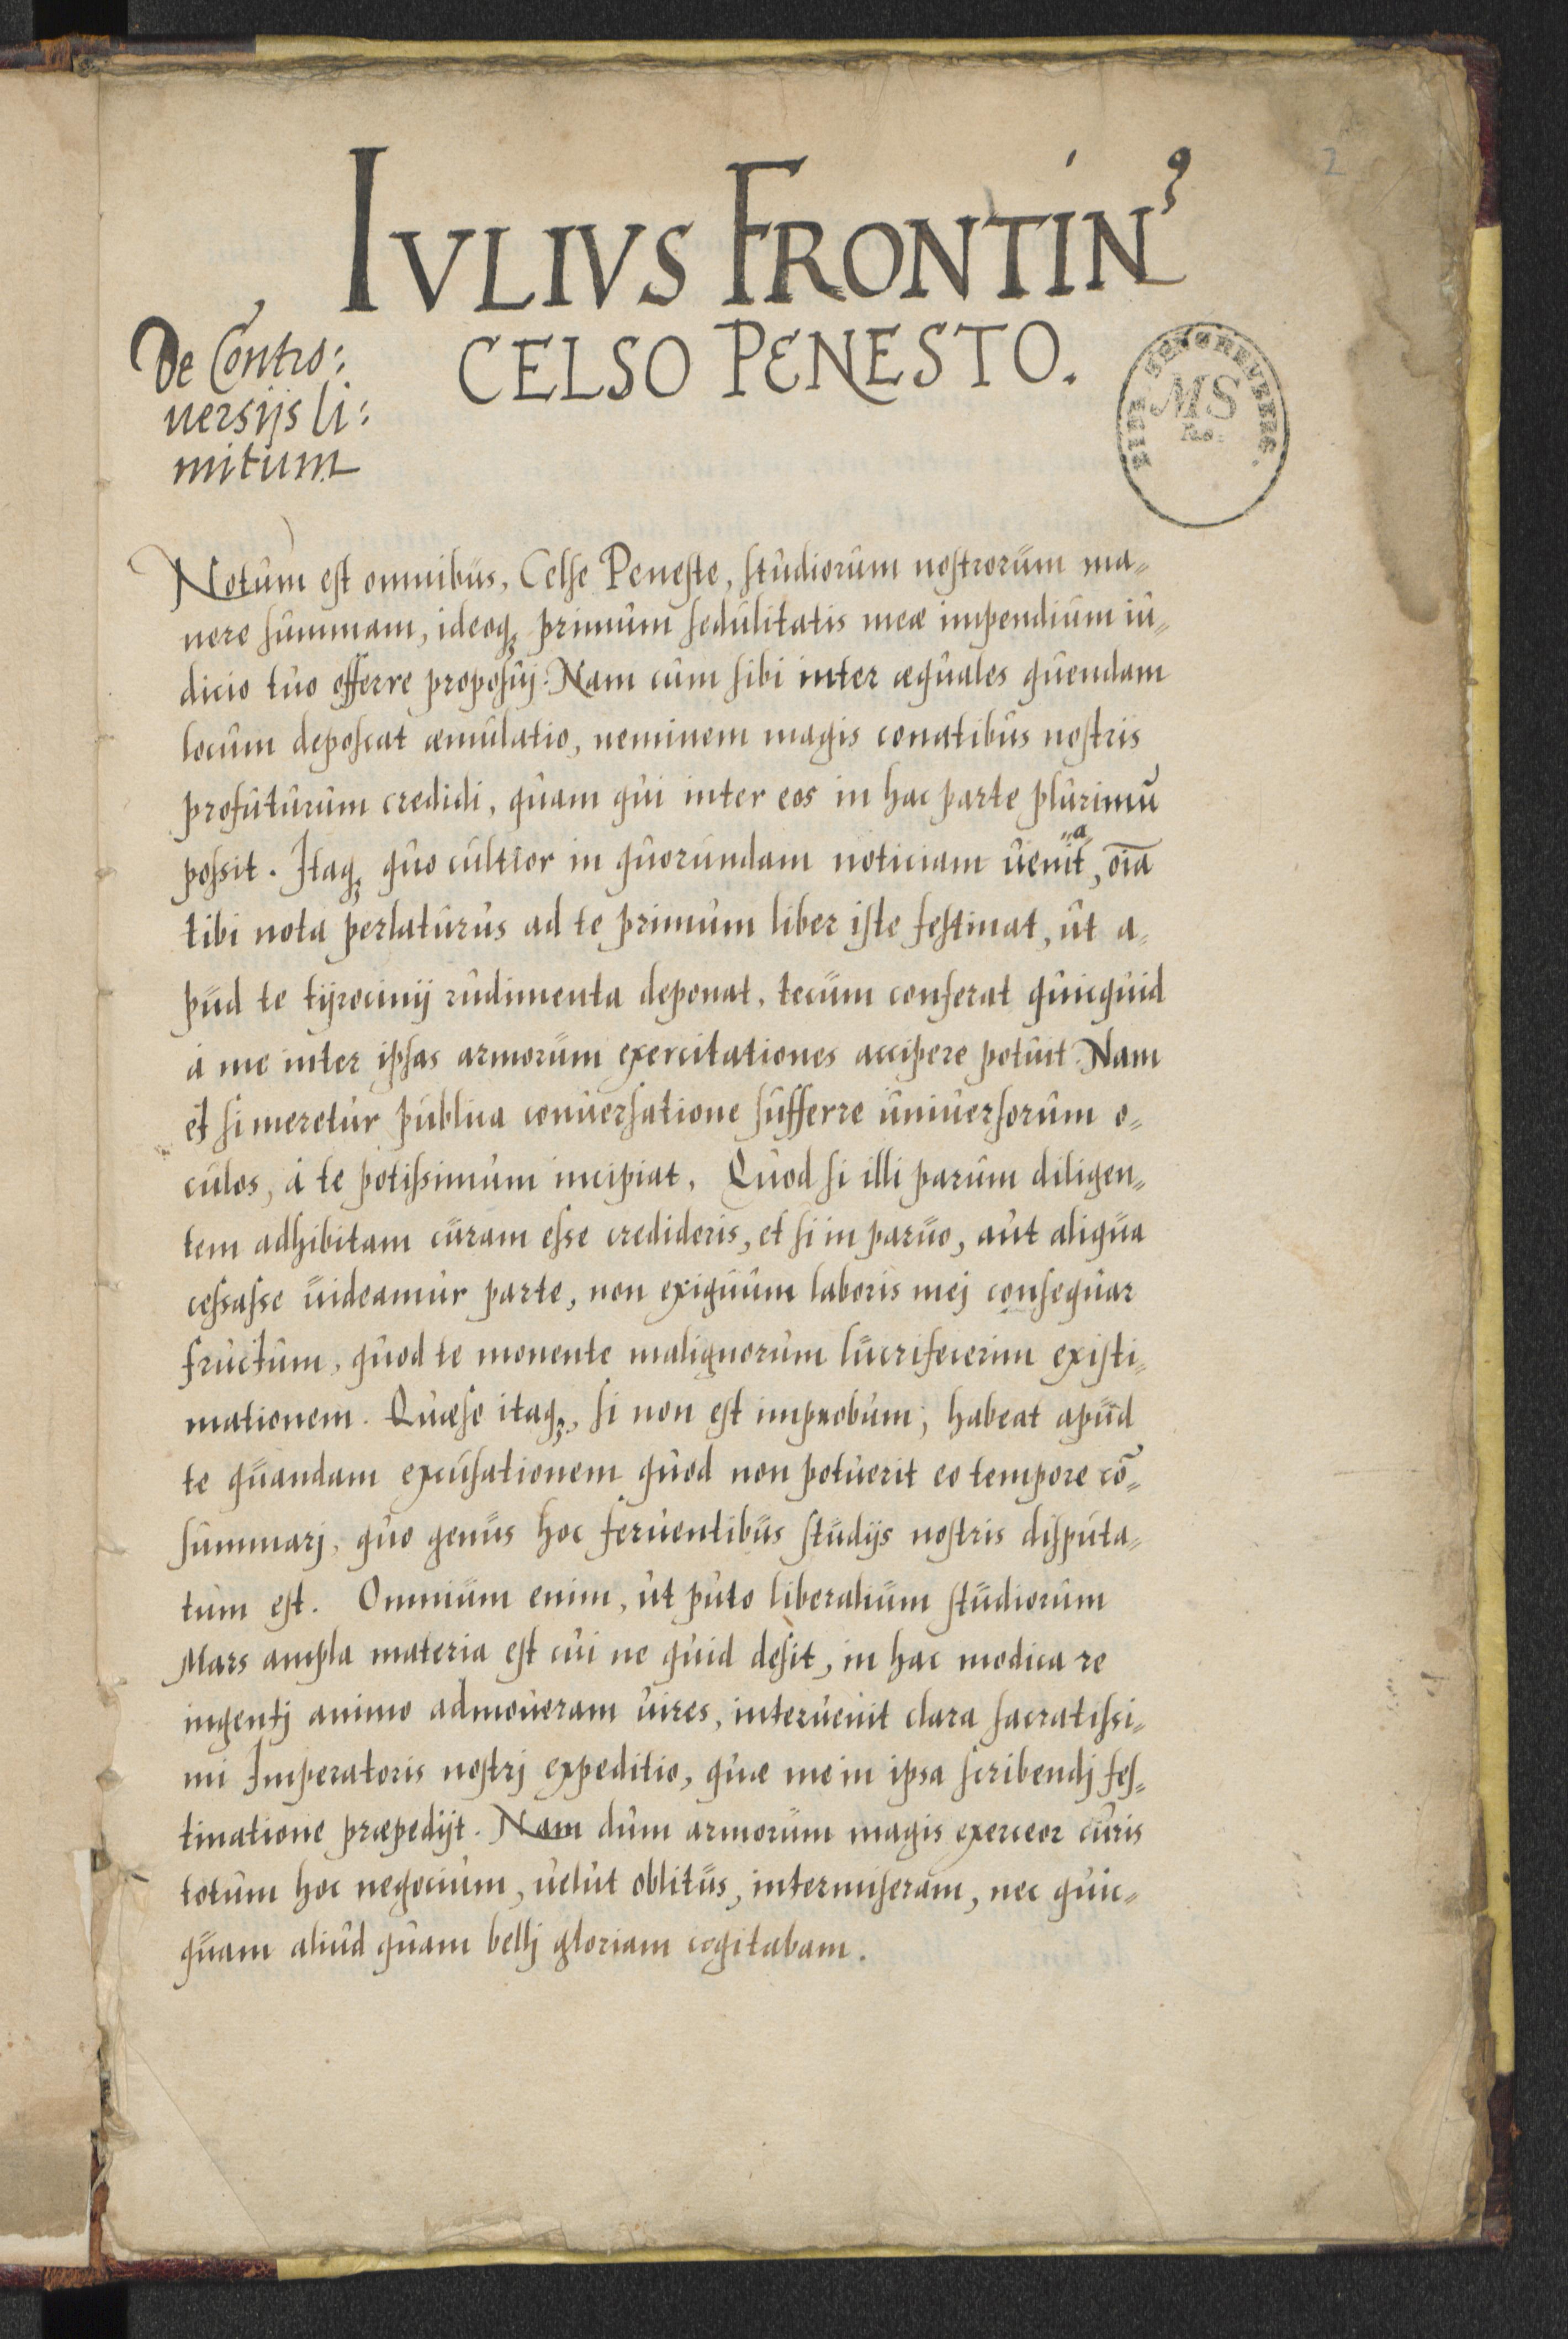 2
IVLIVS FRONTINꝰ
CELSO PENESTO.
De Contro:
uersijs li:
mitum
MS
Notum est omnibus, Celse Peneste, studiorum nostrorum ma„
nere summam, ideoq; primum sedulitatis meæ impendium iu„
dicio tuo offerre proposuj. Nam cum sibi inter æquales quendam
locum deposcat æmulatio, neminem magis conatibus nostris
profuturum credidi, quam qui inter eos in hac parte plurimū
possit. Itaq; quo cultior in quorundam noticiam uenit„a„, oīa
tibi nota perlaturus ad te primum liber iste festinat, ut a„
pud te tÿrocinij rudimenta deponat, tecum conferat quicquid
à me inter ipsas armorum exercitationes accipere potuit. Nam
et si meretur publica conuersatione sufferre uniuersorum o„
culos, à te potissimum incipiat. Quod si illi parum diligen„
tem adhibitam curam esse credideris, et si in paruo, aut aliqua
cessasse uideamur parte, non exiguum laboris mej consequar
fructum, quod te monente malignorum lucrifecerim existi„
mationem. Quæso itaq;, si non est improbum; habeat apud
te quandam excusationem quod non potuerit eo tempore cō„
summarj, quo genus hoc feruentibus studijs nostris disputa„
tum est. Omnium enim, ut puto liberalium studiorum
Mars ampla materia est cui ne quid desit, in hac modica re
ingentj animo admoueram uires, interuenit clara sacratissi„
mi Imperatoris nostrj expeditio, quæ me in ipsa scribendj fes„
tinatione præpedijt. Nam dum armorum magis exerceor curis
totum hoc negocium, uelut oblitus, intermiseram, nec quic„
quam aliud quam bellj gloriam cogitabam.